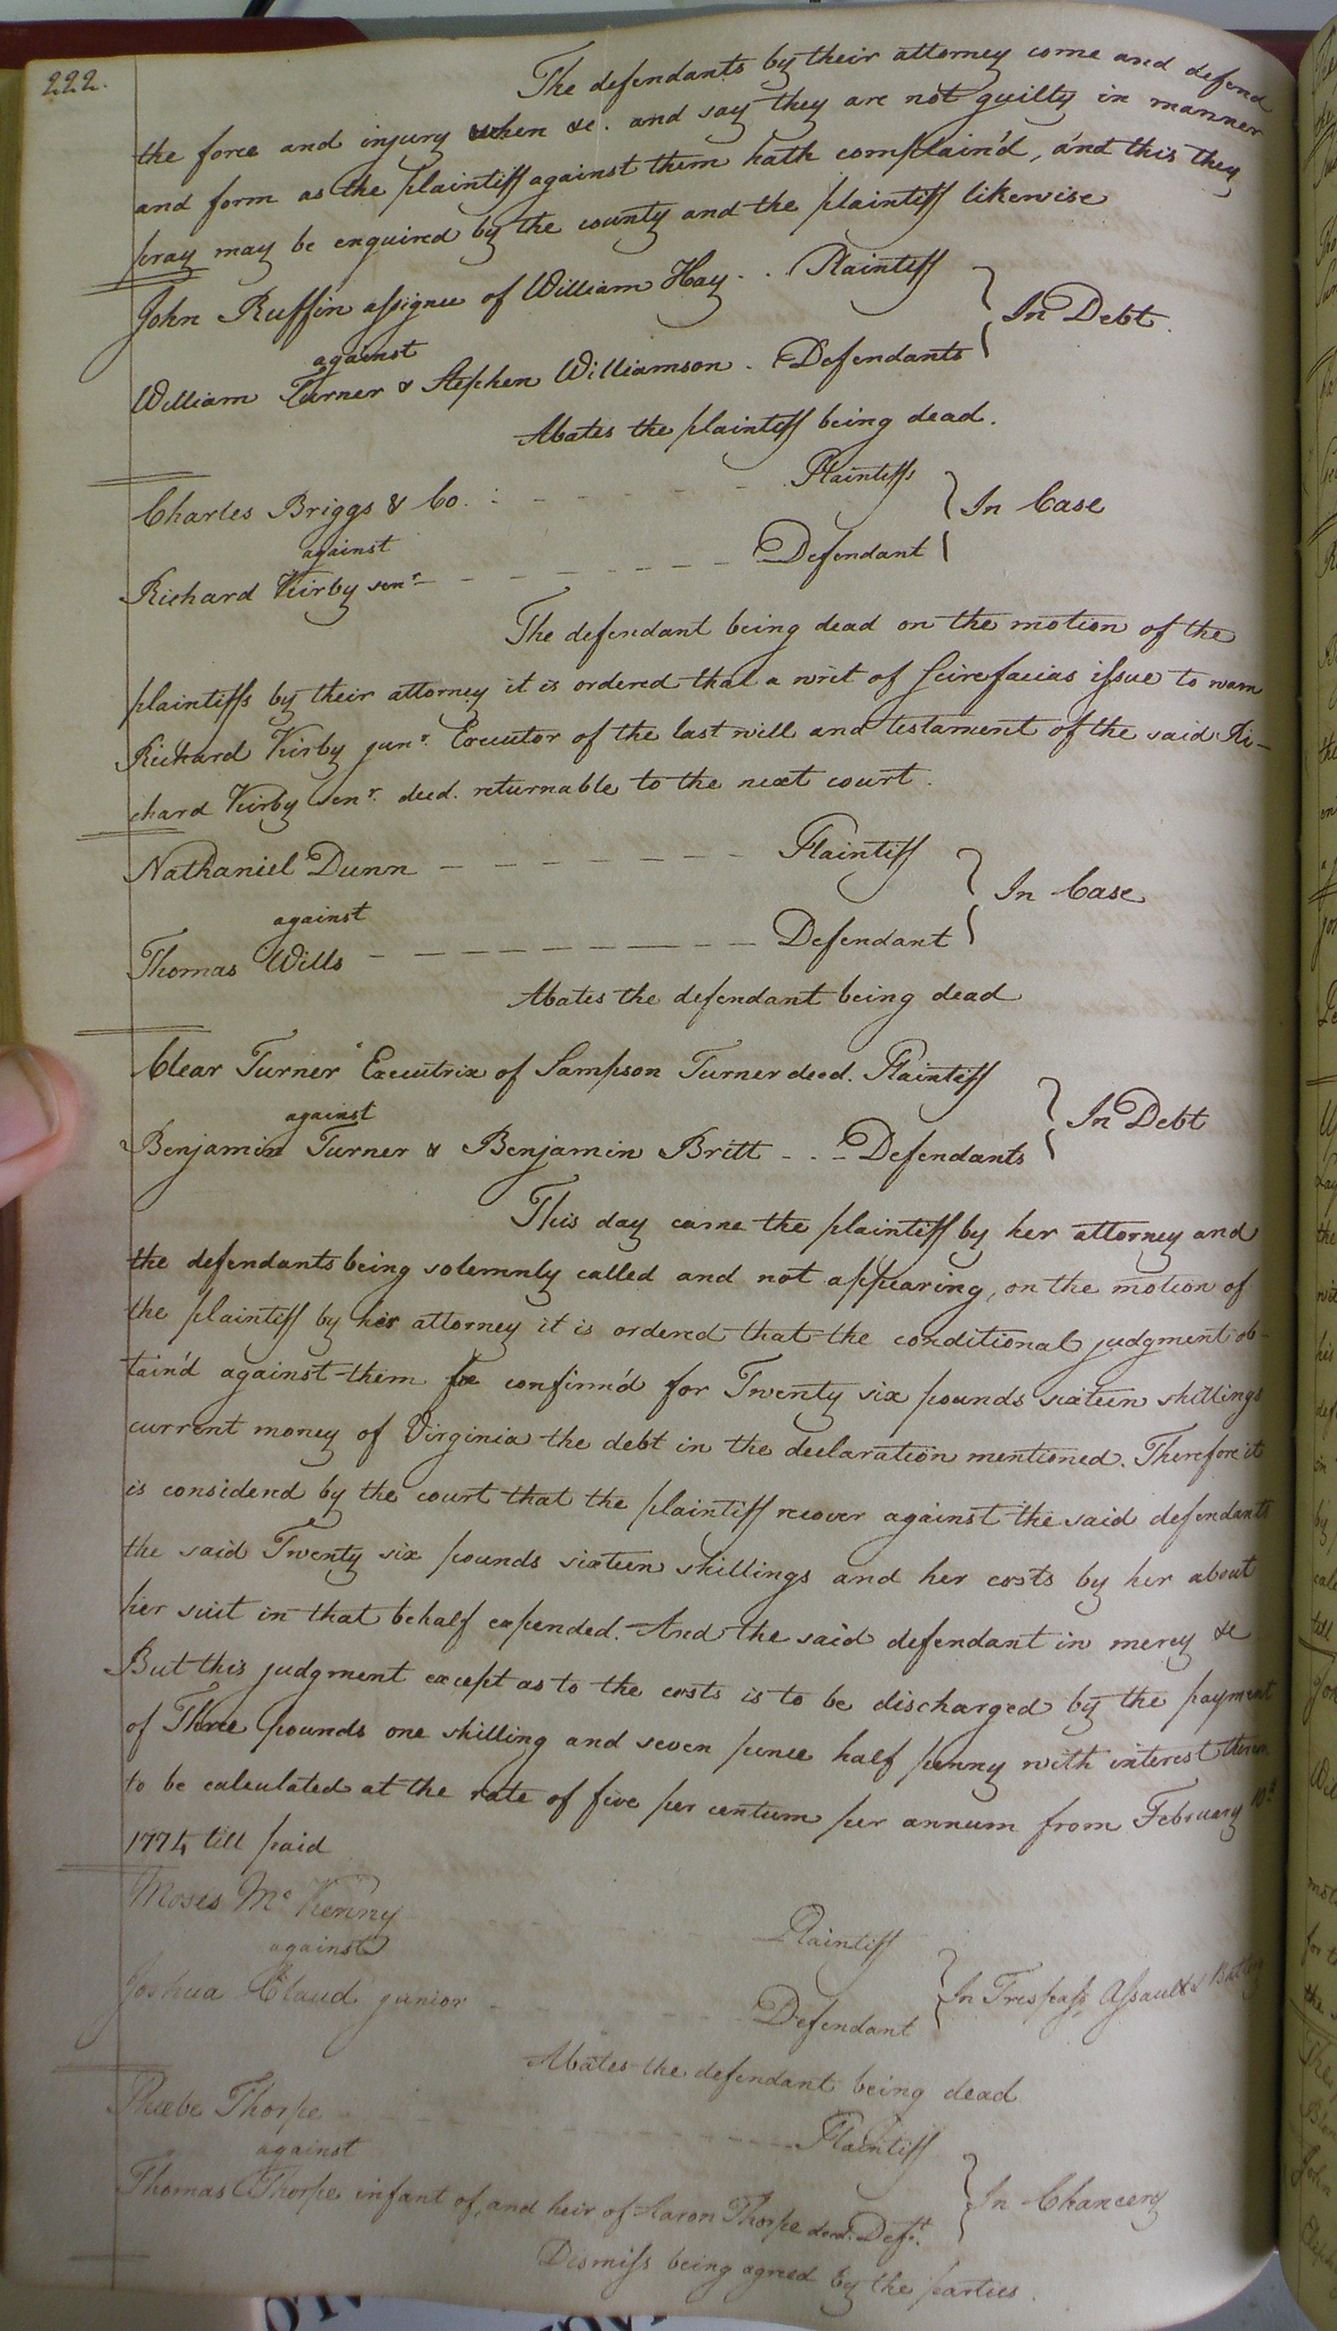 222.
The defendants by their attorney come and defend
the force and injury when &c. and say they are not guilty in manner
and form as the plaintiff against them hath complain'd, and this they
pray may be enquired by the county and the plaintiff likewise
John Ruffin assignee of William Hay . . Plaintiff
In Debt.
against
William Turner & Stephen Williamson . Defendants
Abates the plaintiff being dead.
Charles Briggs & Co. : - - - - - - Plaintiffs
In Case
against
Richard Kirby senr. - - - - - - - - Defendant
The defendant being dead on the motion of the
plaintiffs by their attorney it is ordered that a writ of Scirefacias issue to warn
Richard Kirby junr. Executor of the last will and testament of the said Ri-
chard Kirby senr. decd. returnable to the next court.
Nathaniel Dunn - - - - - - - - Plaintiff
In Case
against
Thomas Wills - - - - - - - - - Defendant
Abates the defendant being dead
Clear Turner Executrix of Sampson Turner decd. Plaintiff
In Debt
against
Benjamin Turner & Benjamin Britt - . - Defendants
This day came the plaintiff by her attorney and
the defendants being solemnly called and not appearing, on the motion of
the plaintiff by her attorney it is ordered that the conditional judgment ob-
tain'd against them be confirm'd for Twenty six pounds sixteen shillings
current money of Virginia the debt in the declaration mentioned. Therefore it
is considerd by the court that the plaintiff recover against the said defendants
the said Twenty six pounds sixteen shillings and her costs by her about
her suit in that behalf expended. And the said defendant in mercy &c
But this judgment except as to the costs is to be discharged by the payment
of Three pounds one shilling and seven pence half penny with interest thereon
to be calculated at the rate of five per centum per annum from February 10th
1774 till paid
Moses McKenny Plaintiff
against
In Trespass, Assault & Battery
Joshua Claud junior - - - - - Defendant
Abates the defendant being dead
Phebe Thorpe - - - - - - - - Plaintiff
against
In Chancery
Thomas Thorpe infant of, and heir of Aaron Thorpe decd. Deft.
Dismiss being agreed by the parties.